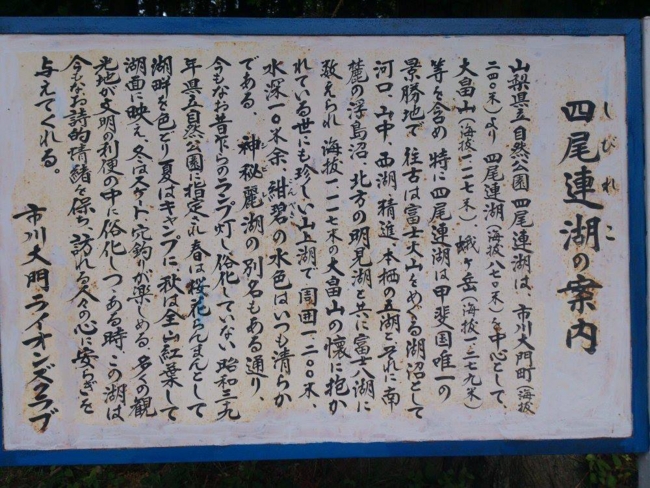 四尾連湖の案内
しびれこ
山梨県立自然公園四尾連湖は、市川大門町(海抜
二四〇米)より四尾連湖(海抜八七〇米)を中心として、
大畠山(海抜一一二七米)蛾ヶ岳(海抜一二七九米)
等を含め特に四尾連湖は甲斐国唯一の
景勝地で往古は富士火山をめぐる湖沼として
河口、山中、西湖、精進、本栖の五湖とそれに南
麓の浮島沼、北方の明見湖と共に富士八湖に
数えられ海抜一一二七米の大畠山の懐に抱か
れている世にも珍しい山上湖で、周囲一、二〇〇米、
水深一〇米余、紺碧の水色はいつも清らか
である。神秘麗湖の別名もある通り、
今もなお昔ながらのランプ灯し俗化していない昭和三九
年県立自然公園に指定され春は桜花らんまんとして
湖畔を色どり夏はキャンプに秋は全山紅葉して
湖面に映え、冬はスケート、穴釣が楽しめる、多くの観
光地が文明の利便の中に俗化しつゝある時、この湖は
今もなお詩的情緒を保ち、訪れる人々の心に安らぎを
与えてくれる。
市川大門ライオンズクラブ